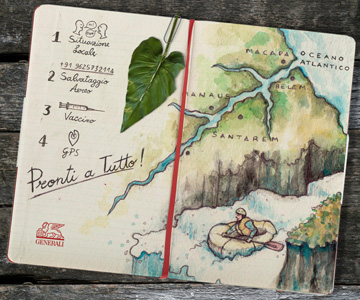 1 Situazione
Locale
+91.9625732114
2 Salvataggio
Aereo
3
Vaccino
4
GPS
Pronti a Tutto!
GENERALI
MACAPA
OCEANO
ATLANTICO
BELEM
MANAUS
SANTAREM